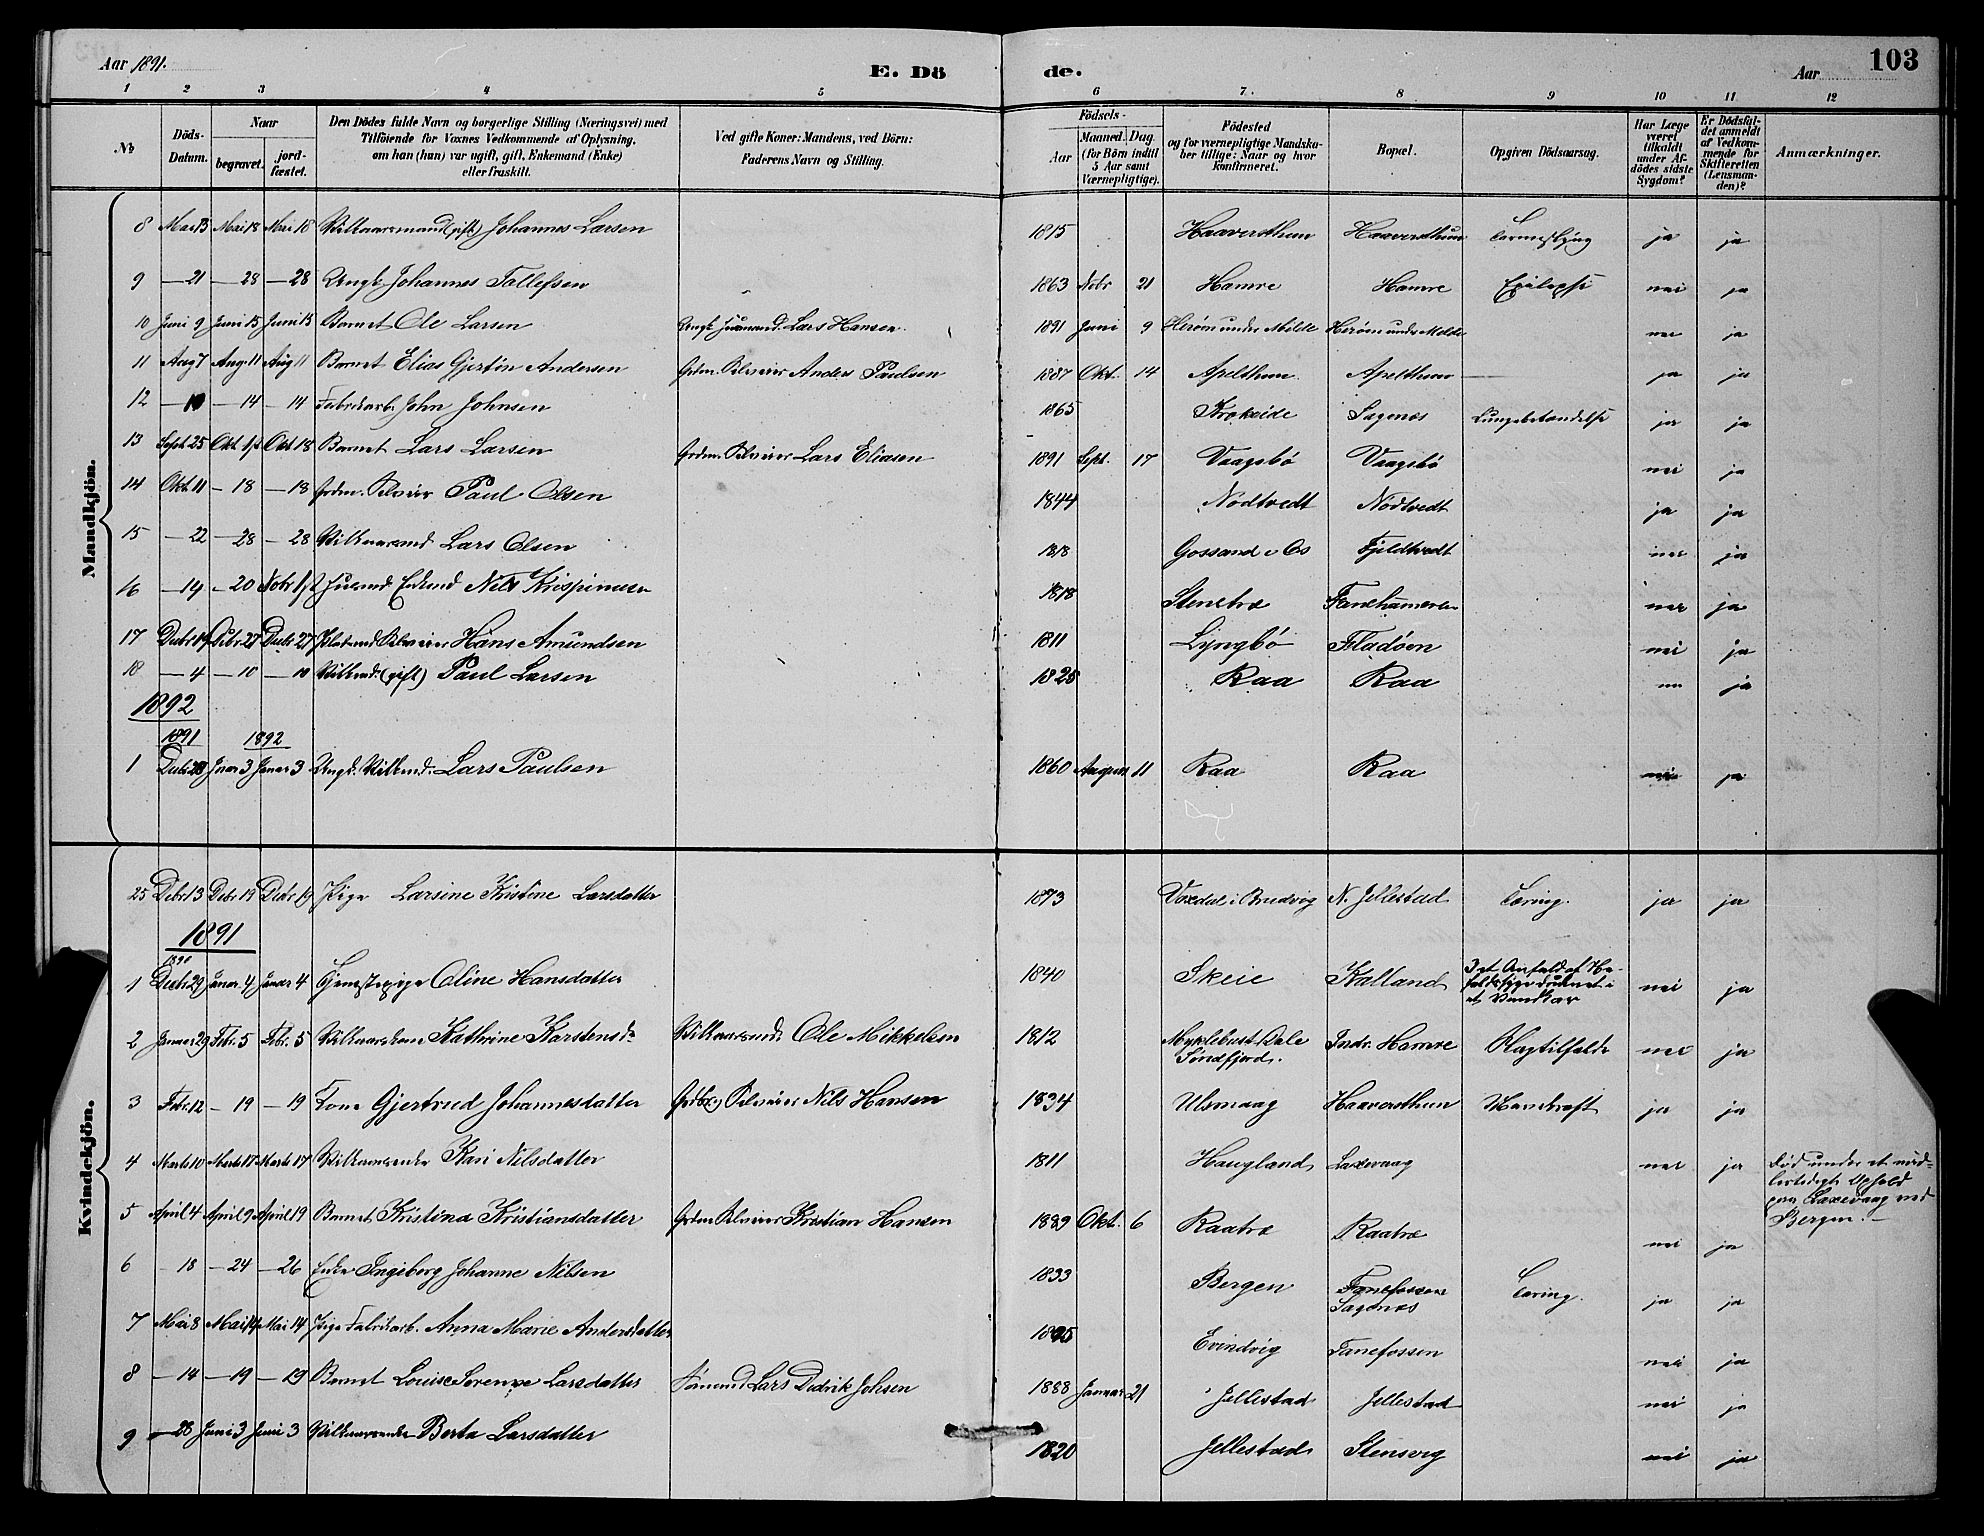 Aar 1891.
E. Dö de.
Aar
103
1 2 3 4 5 6 7. 8 9 10 11 12
№
Döds-Datum.
Naar
begravet. jord-fæstet.
Den Dödes fulde Navn og borgerlige Stilling (Næringsvei) med
Tilföiende for Voxnes Vedkommende af Oplysning,
om han (hun) var ugift, gift, Enkemand (Enke)
eller fraskilt.
Ved gifte Koner: Mandens, ved Börn:
Faderens Navn og Stilling.
Födsels-
Aar Maaned. Dag.
(for Börn indtil
5 Aar samt
Værnepligtige).
Födested
og for værnepligtige Mandska-
ber tillige: Naar og hvor
konfirmeret.
Bopæl.
Opgiven Dödsaarsag.
Har Læge
været
tilkaldt
under Af-
dödes sidste
Sygdom?
Er Dödsfal-
det anmeldt
af Vedkom-
mende for
Skifteretten
(Lensman-
den)?
Anmærkninger.
Mandkjön.
8 Mai 13 Mai 18 Mai 18 Vilkaarsmand (gift) Johannes Larsen 1815 Haaversthun Haaversthun ja ja
9 — 21 — 28 — 28 Ungk. Johannes Tollefsen 1863 Nobr 21 Hamre Hamre Epilepsi nei ja
10 Juni 9 Juni 15 Juni 15 Barnet Ole Larsen Ungk. Husmand. Lars Hansen. 1891 Juni 9 Herøen under Milde Herøen under Milde nei ja
11 Aug 7 Aug 11 Aug 11 Barnet Elias Gjertin Andersen Grdm. Selveier Anders Paulsen 1887 Okt. 14 Apelthun Apelthun — ja ja
12 — 10 — 14 — 14 Fabrikarb. John Johnsen 1865 Krokeide Sagenæs Lungebetændelse ja ja
13 Sept 25 Okt 1 Okt 18 Barnet Lars Larsen Grdm. Selveier Lars Eliasen 1891 Sept. 17 Vaagsbø Vaagsbø nei ja
14 Okt 11 — 18 — 18 Grdm. Selveier Paul Olsen 1844 Nodtvedt Nodtvedt ja ja
15 — 22 — 28 — 28 Vilkaarsmd Lars Olsen 1818 Gossand i Os Fjeldtvedt nei ja
16 — 14 — 20 Nobr 1 Husmd. Enkmd Nils Krispinusen 1818 Stenetræ Fanehameren nei ja
17 Decbr 19 Decbr 27 Decbr 27 Selveier Hans Amundsen 1811 Lyngbø Fladøen nei ja
18 — 4 — 10 — 10 Vilkmd. (gift) Paul Larsen 1825 Raa Raa nei ja
1892
1891 1892
1 Decbr 28 Januar 3 Januar 3 Ungk. Vilkmd. Lars Paulsen 1860 August 11 Raa Raa nei ja
Kvindekjön.
25 Debr 13 Debr 19 Debr 19 Pige Larsine Kristine Larsdatter 1873 Voxdal i Bruvig N. Jellestad Tæring. ja ja
1891
1890
1 Decbr 29 Januar 4 Januar 4 Tjenestepige Oline Hansdatter 1840 Skeie Kalland I et Anfald af Fa-
ldesyge druknet i
et Vandkar nei ja
2 Januar 29 Febr. 5 Febr. 5 Vilkaarskone Kathrine Karstensdr Vilkaarsmd. Ole Mikkelsen 1812 Myklebust Dale
Søndfjord. Indr. Hamre Slagtilfælde nei ja
3 Febr. 12 — 19 — 19 Kone Gjertrud Johannesdatter Selveier Nils Hansen 1834 Ulsmaag Haaversthun Mavekræft ja ja
4 Marts 10 Marts 17 Marts 17 Vilkaarsenke Kari Nilsdatter 1811 Haugland Laxevaag nei ja Død under et mid-
lertidigt Ophold
paa Laxevaag ved
Bergen. —
5 April 4 April 9 April 19 Barnet Kristina Kristiansdatter Grdm. Selveier Kristian Hansen 1889 Okt. 6 Raatræ Raatræ nei ja
6 — 18 — 24 — 26 Enke Ingeborg Johanne Nilsen 1833 Bergen Fanefossen
Sagenæs Tæring. ja ja
7 Mai 8 Mai 14 Mai 14 Pige Fabrikarb. Anna Marie Andersdatter Evindvig Fanefossen nei ja
8 — 14 — 19 — 19 Barnet Louise Serense Larsdatter Lars Didrik Johsen 1888 Januar 21 Jellestad Jellestad nei ja
9 — 28 Juni 3 Juni 3 Vilkaarsenke Berta Larsdatter 1820 Jellestad Stensvig nei ja